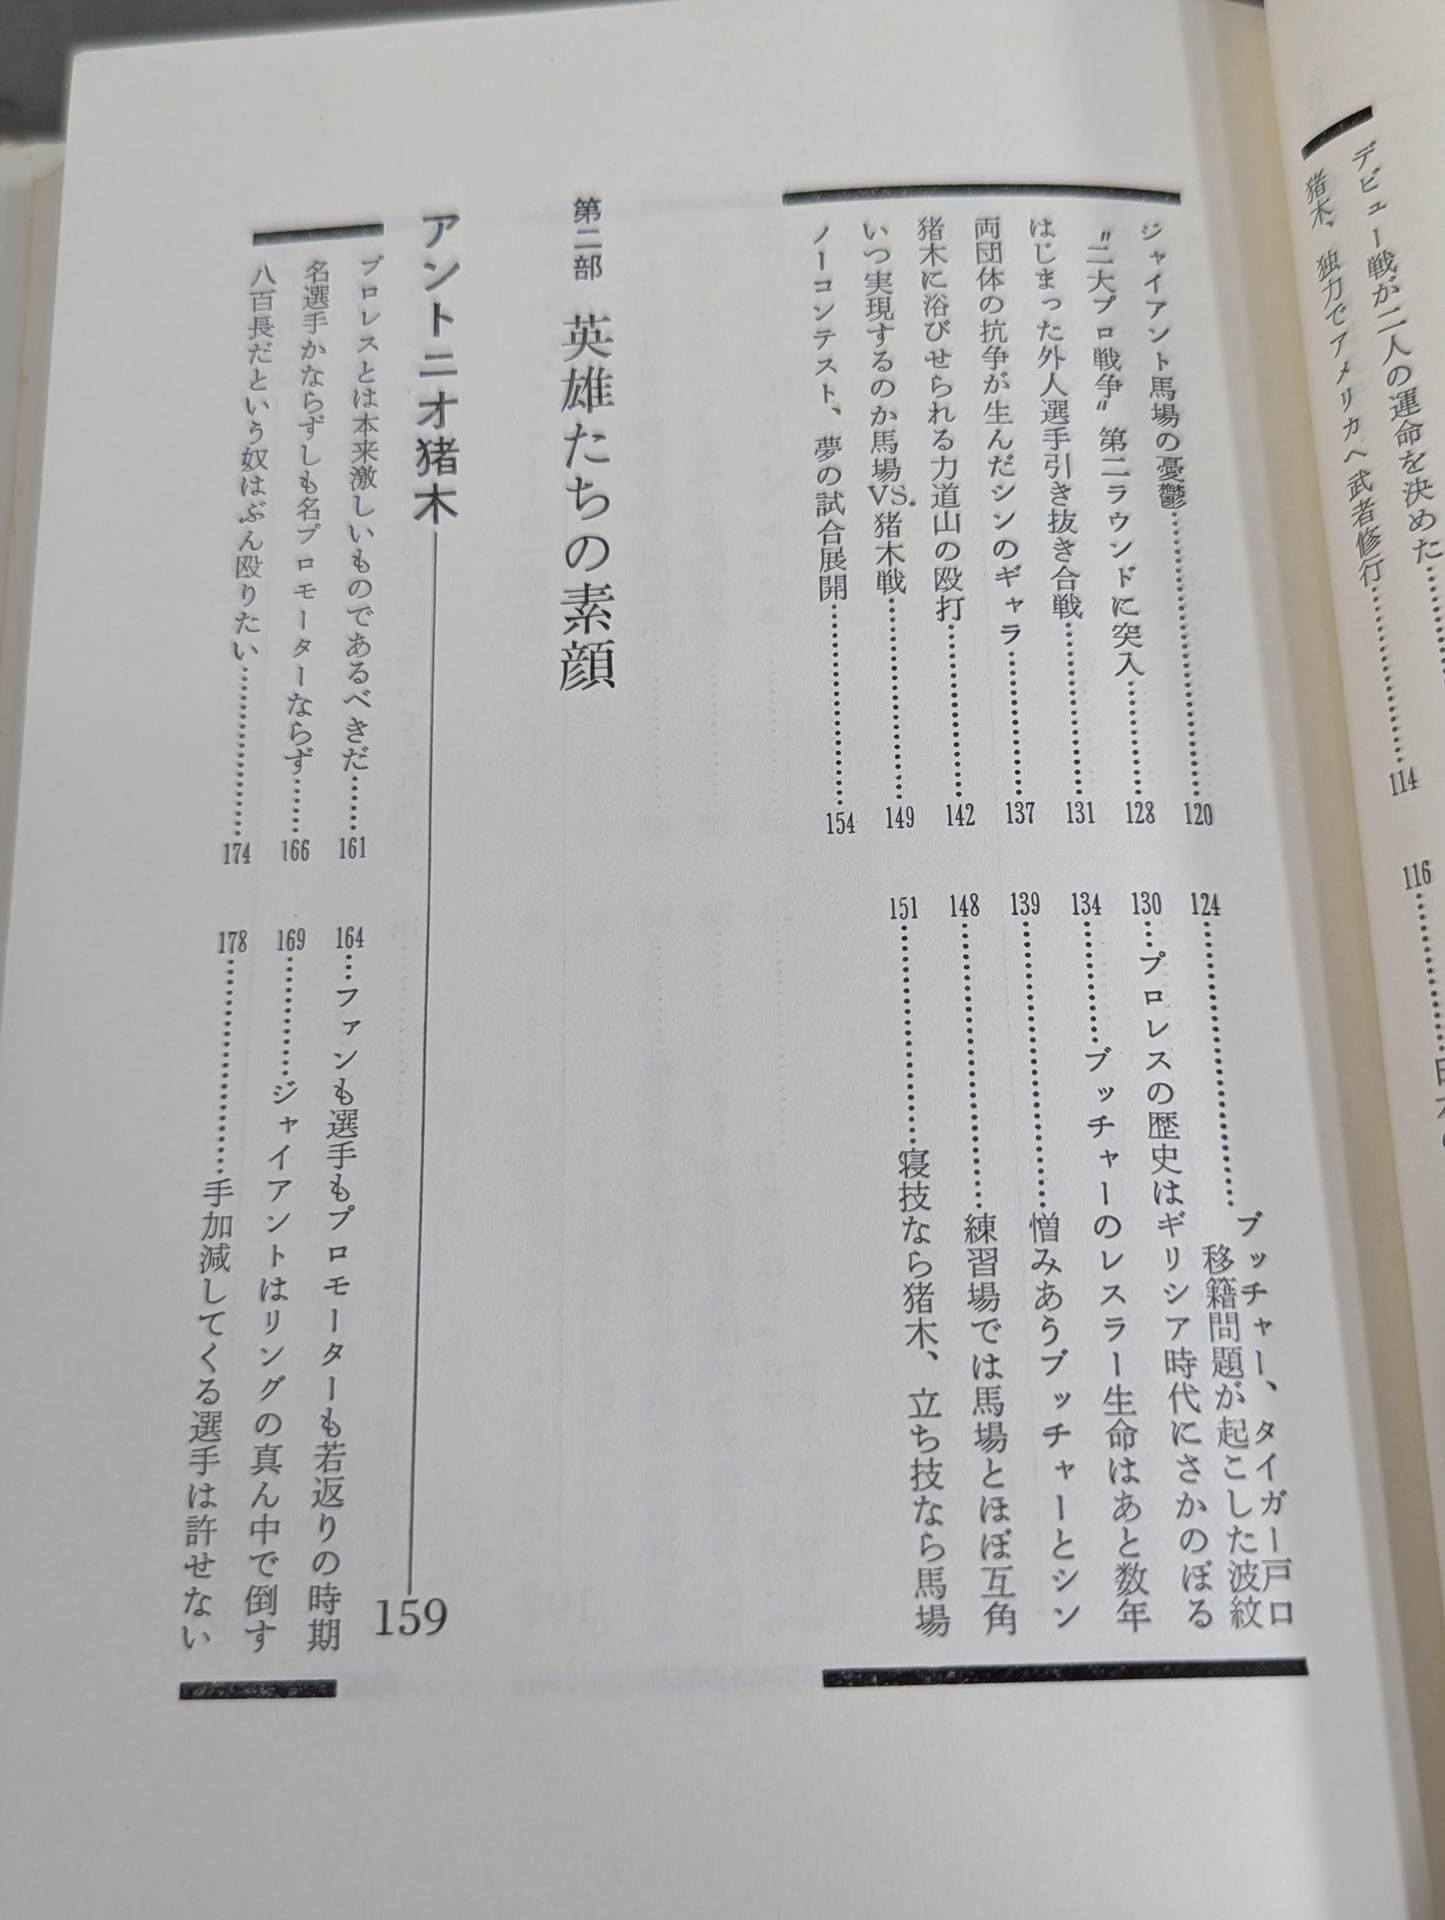 デビュー戦が二人の運命を決めた
猪木、独力でアメリカへ武者修行……114
116
ジャイアント馬場の憂鬱……120
〝二大プロ戦争〟第二ラウンドに突入……128
はじまった外人選手引き抜き合戦……131
両団体の抗争が生んだシンのギャラ……137
猪木に浴びせられる力道山の殴打……142
いつ実現するのか馬場VS.猪木戦……149
ノーコンテスト、夢の試合展開……154
124……ブッチャー、タイガー戸口
移籍問題が起こした波紋
130…プロレスの歴史はギリシア時代にさかのぼる
134……ブッチャーのレスラー生命はあと数年
139……憎みあうブッチャーとシン
148……練習場では馬場とほぼ互角
151……寝技なら猪木、立ち技なら馬場
第二部 英雄たちの素顔
アントニオ猪木――159
プロレスとは本来激しいものであるべきだ……161
名選手かならずしも名プロモーターならず……166
八百長だという奴はぶん殴りたい……174
164…ファンも選手もプロモーターも若返りの時期
169……ジャイアントはリングの真ん中で倒す
178……手加減してくる選手は許せない